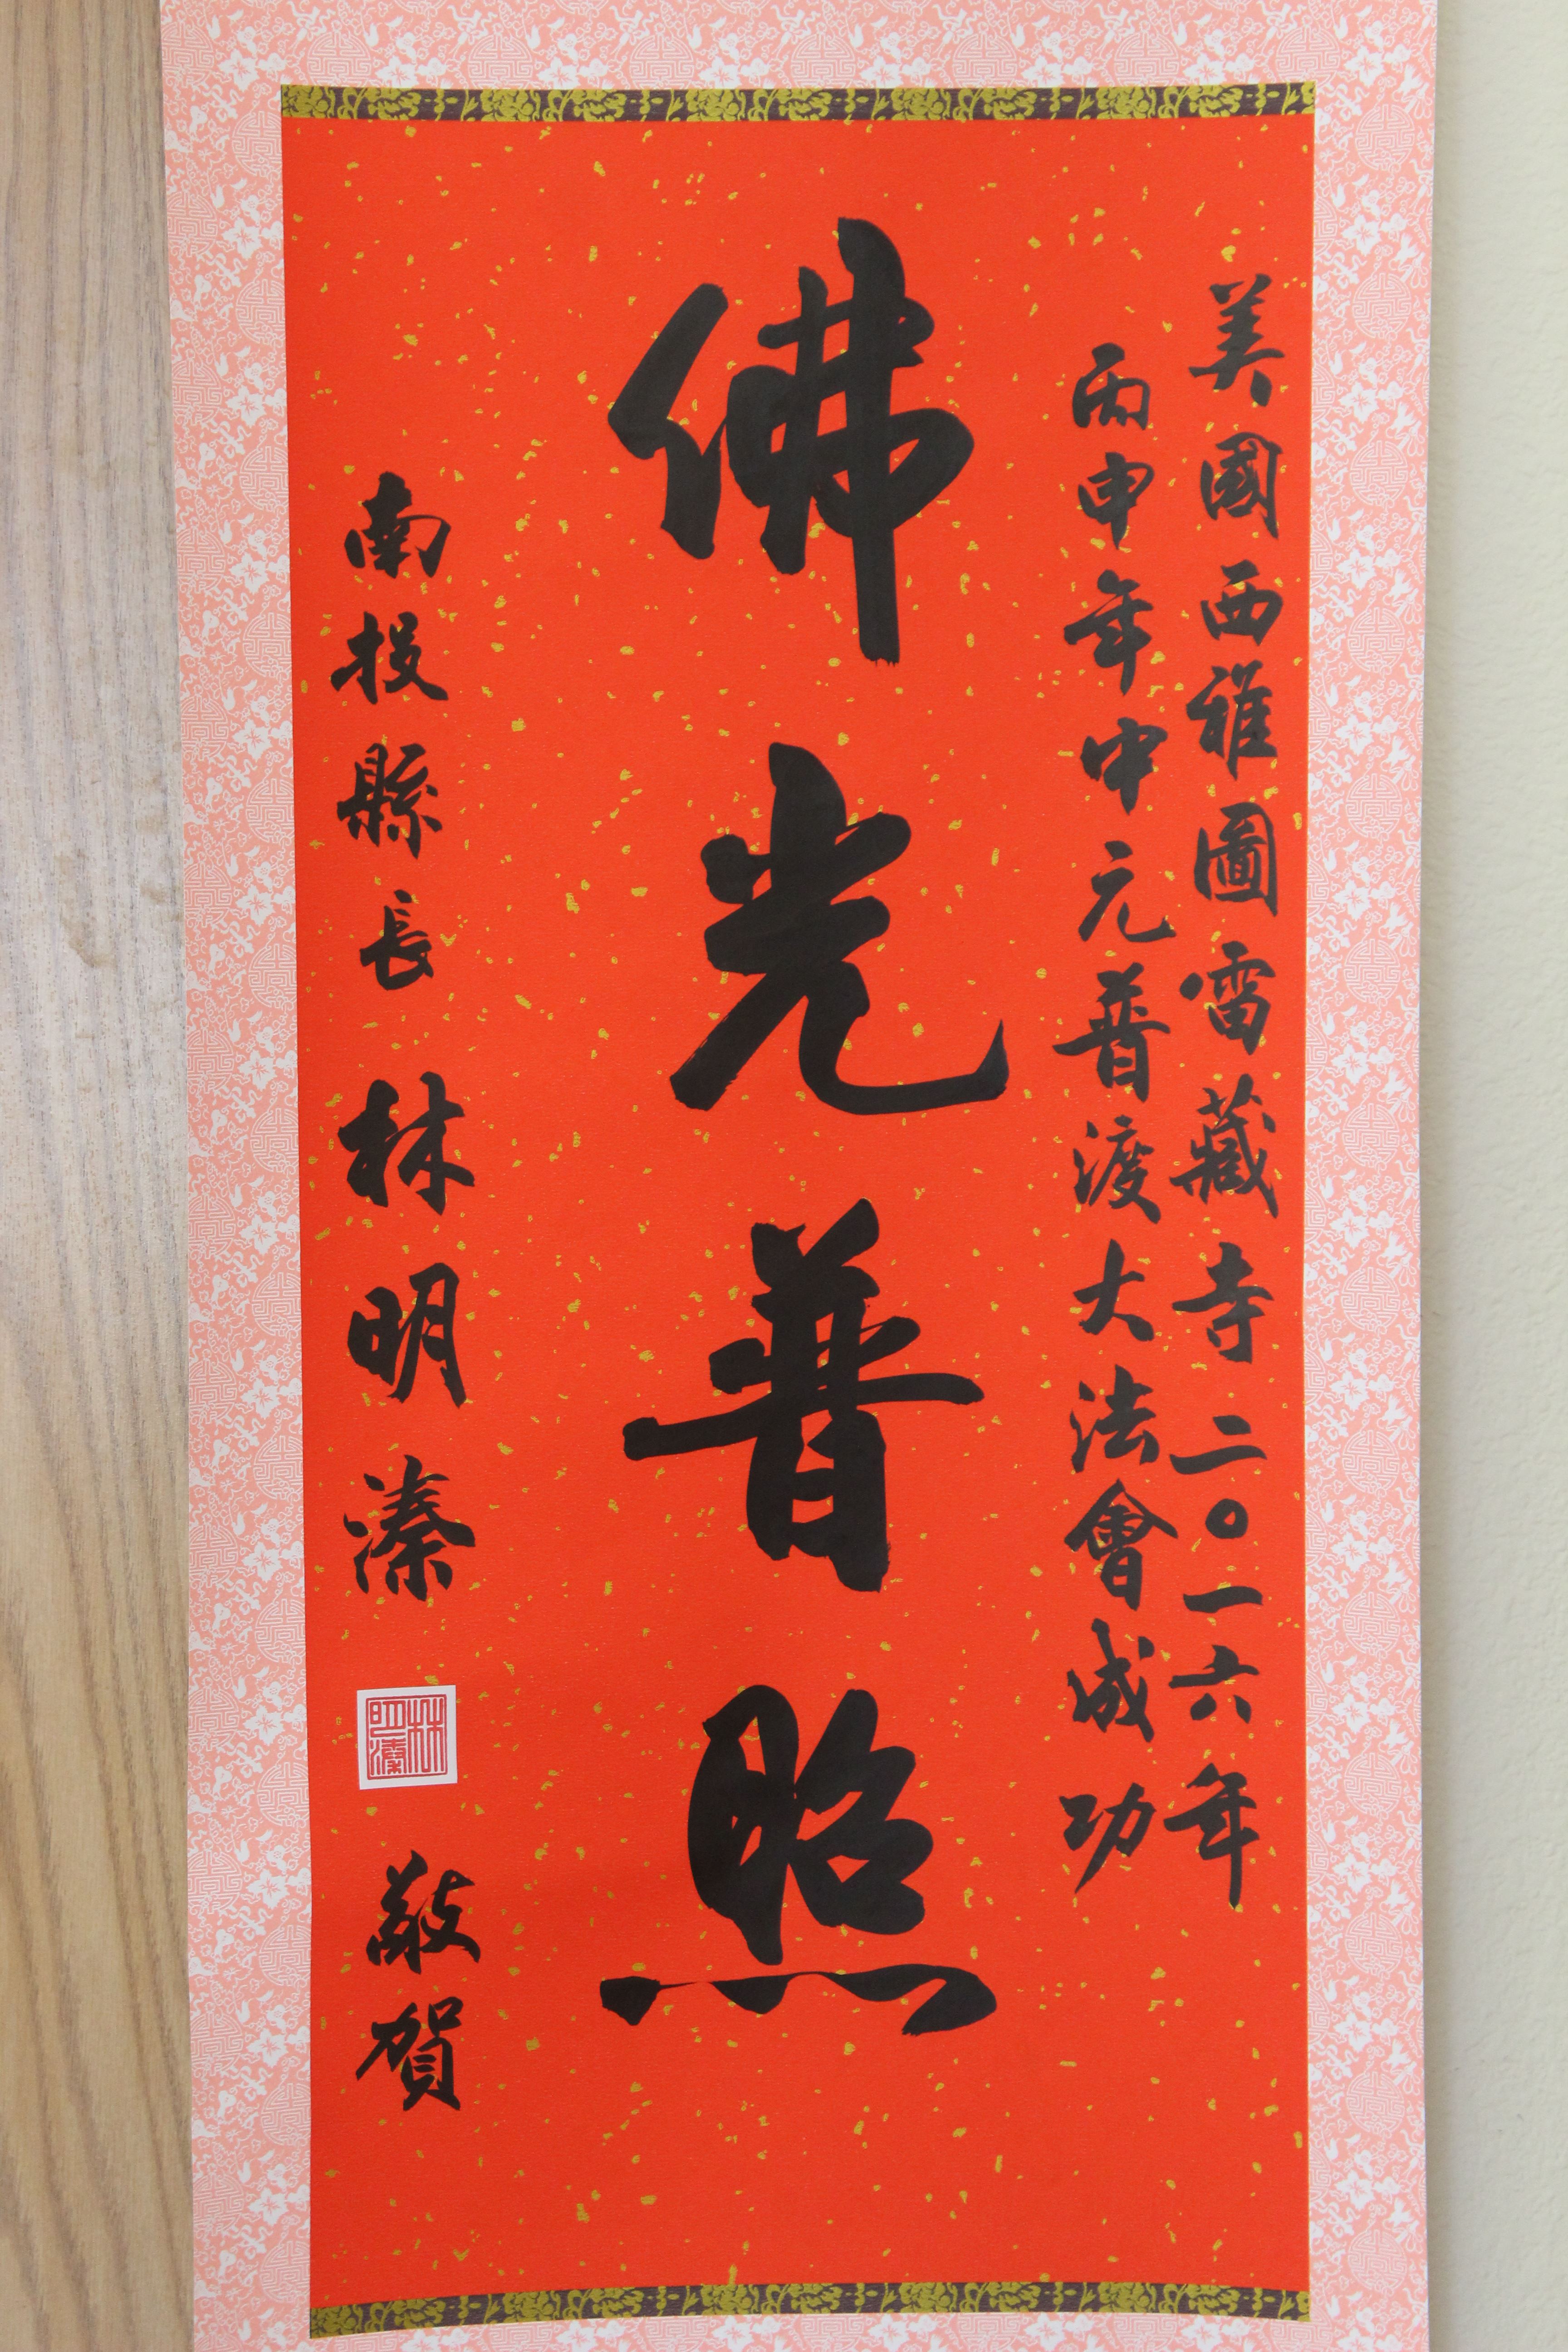 美國西雅圖雷藏寺二〇一六年
丙申年中元普渡大法會成功
佛光普照
南投縣長林明溱
林明溱
敬賀